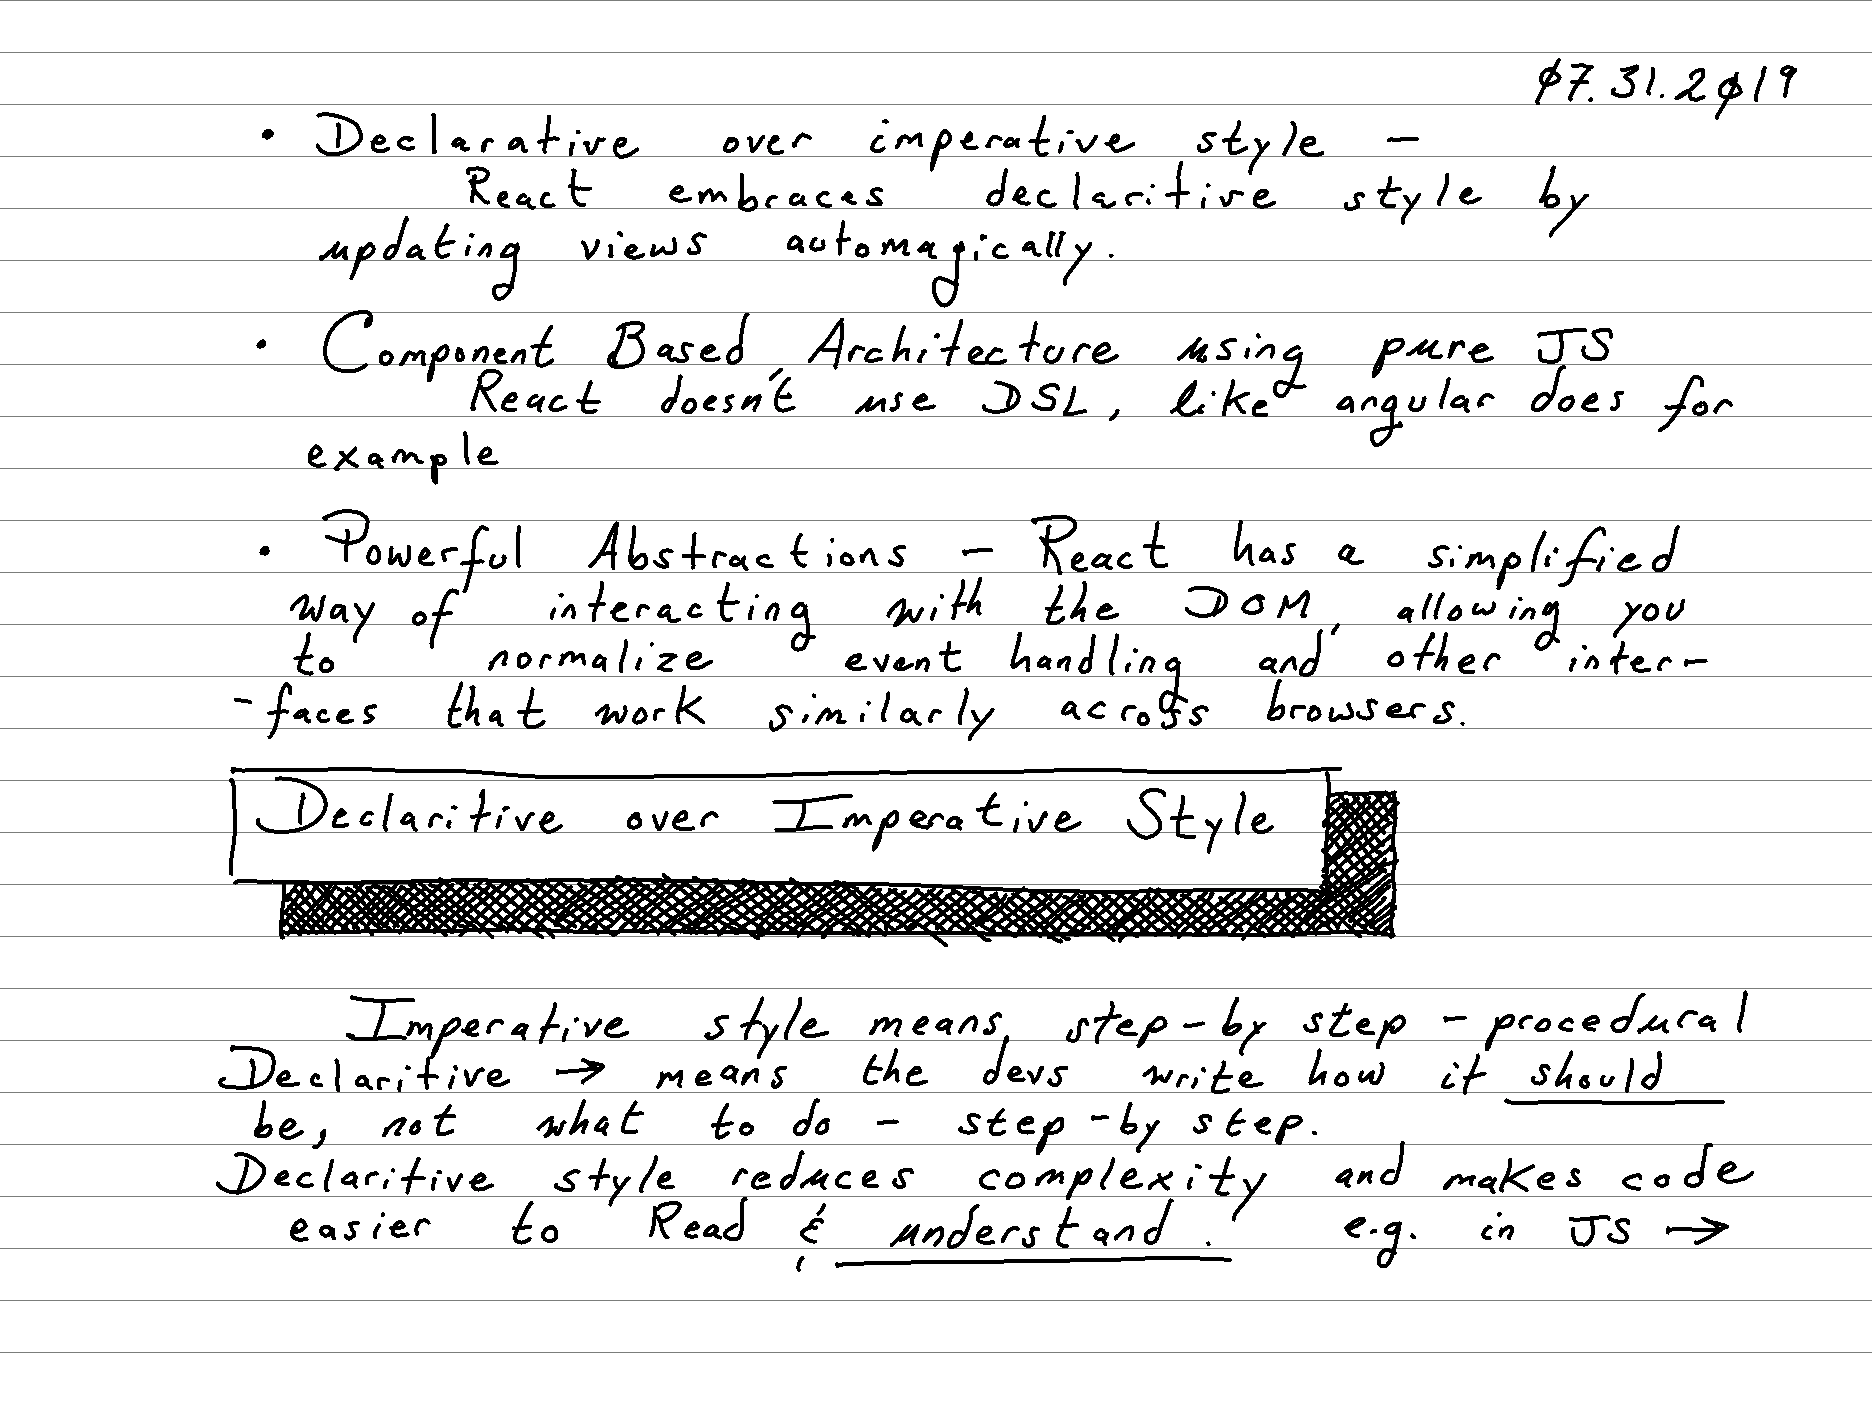 07.31.2019
• Declarative over imperative style –
React embraces declaritive style by
updating views automagically.
• Component Based Architecture using pure JS
React doesn't use DSL, like angular does for
example
• Powerful Abstractions – React has a simplified
way of interacting with the DOM, allowing you
to normalize event handling and other inter-
-faces that work similarly across browsers.
Declaritive over Imperative Style
Imperative style means, step-by step – procedural
Declaritive → means the devs write how it should
be, not what to do – step-by step.
Declaritive style reduces complexity and makes code
easier to Read & understand. e.g. in JS →